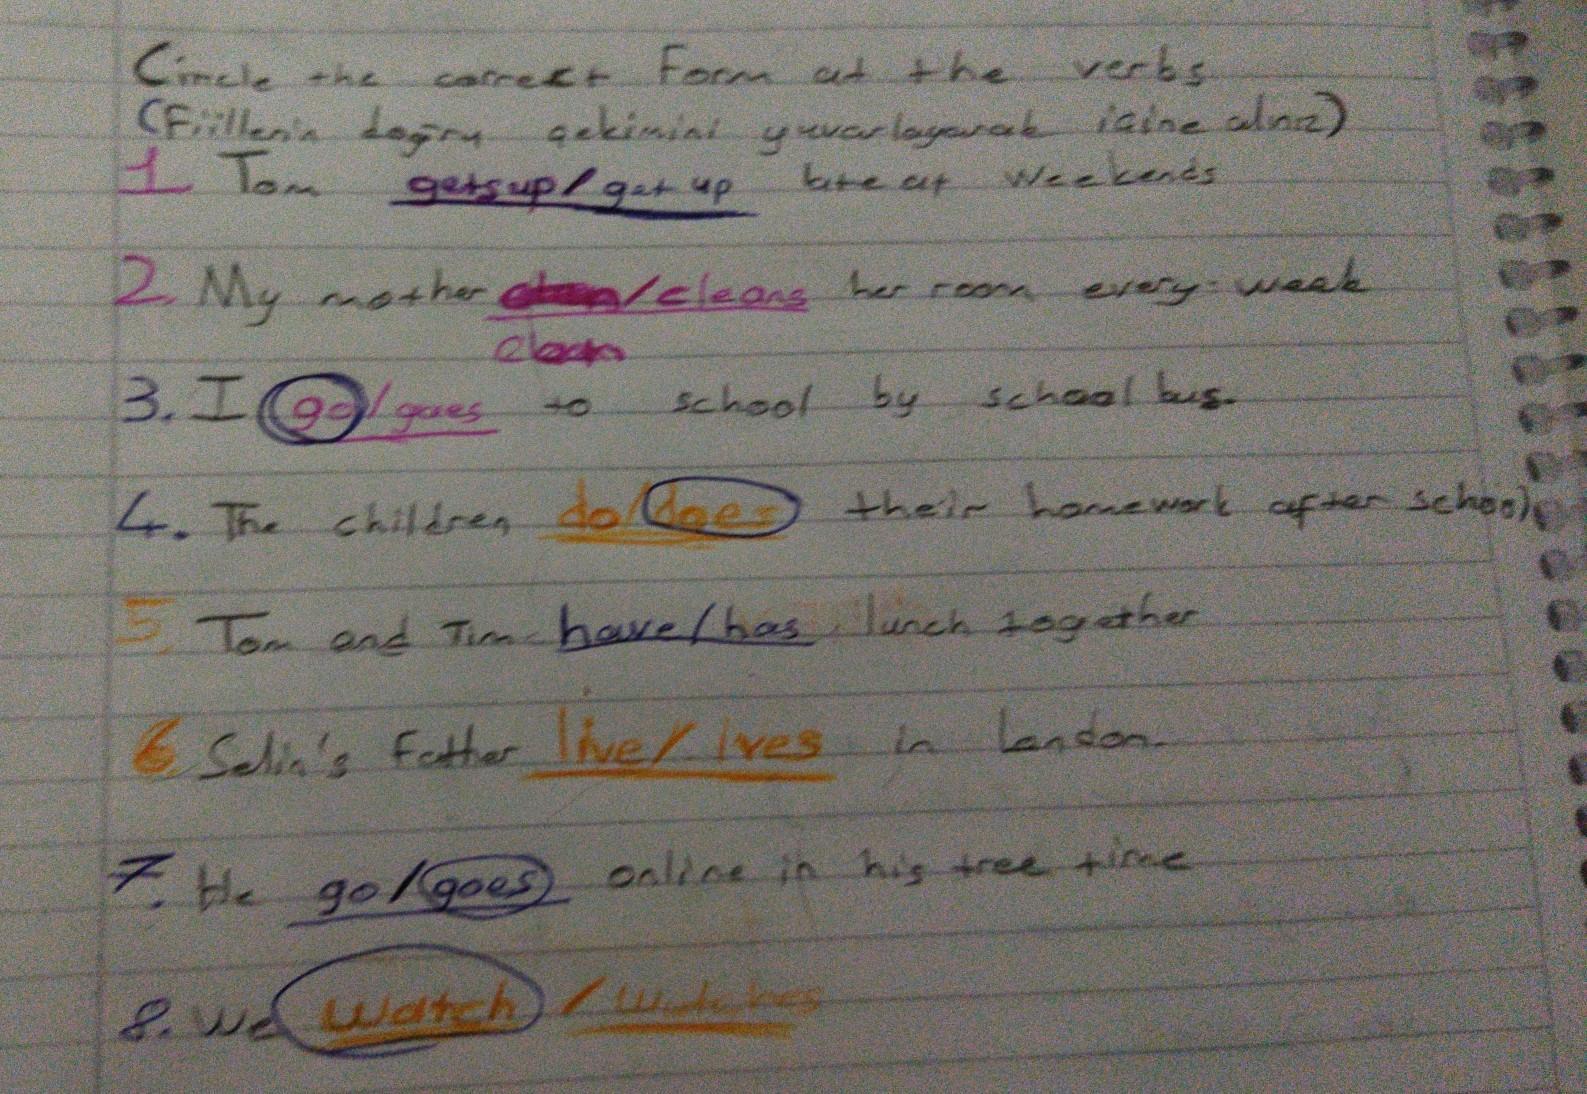 Circle the correct Form at the verbs
(Fiillerin doğru çekimini yuvarlayarak içine alınız)
1. Tom gets up / get up late at weekends
2. My mother clean / cleans her room every week
clean
3. I go / goes to school by school bus.
4. The children do / does their homework after school
5 Tom and Tim have / has lunch together
6. Selin's Father live / lives in London.
7. He go / goes online in his free time
8. We watch / watches